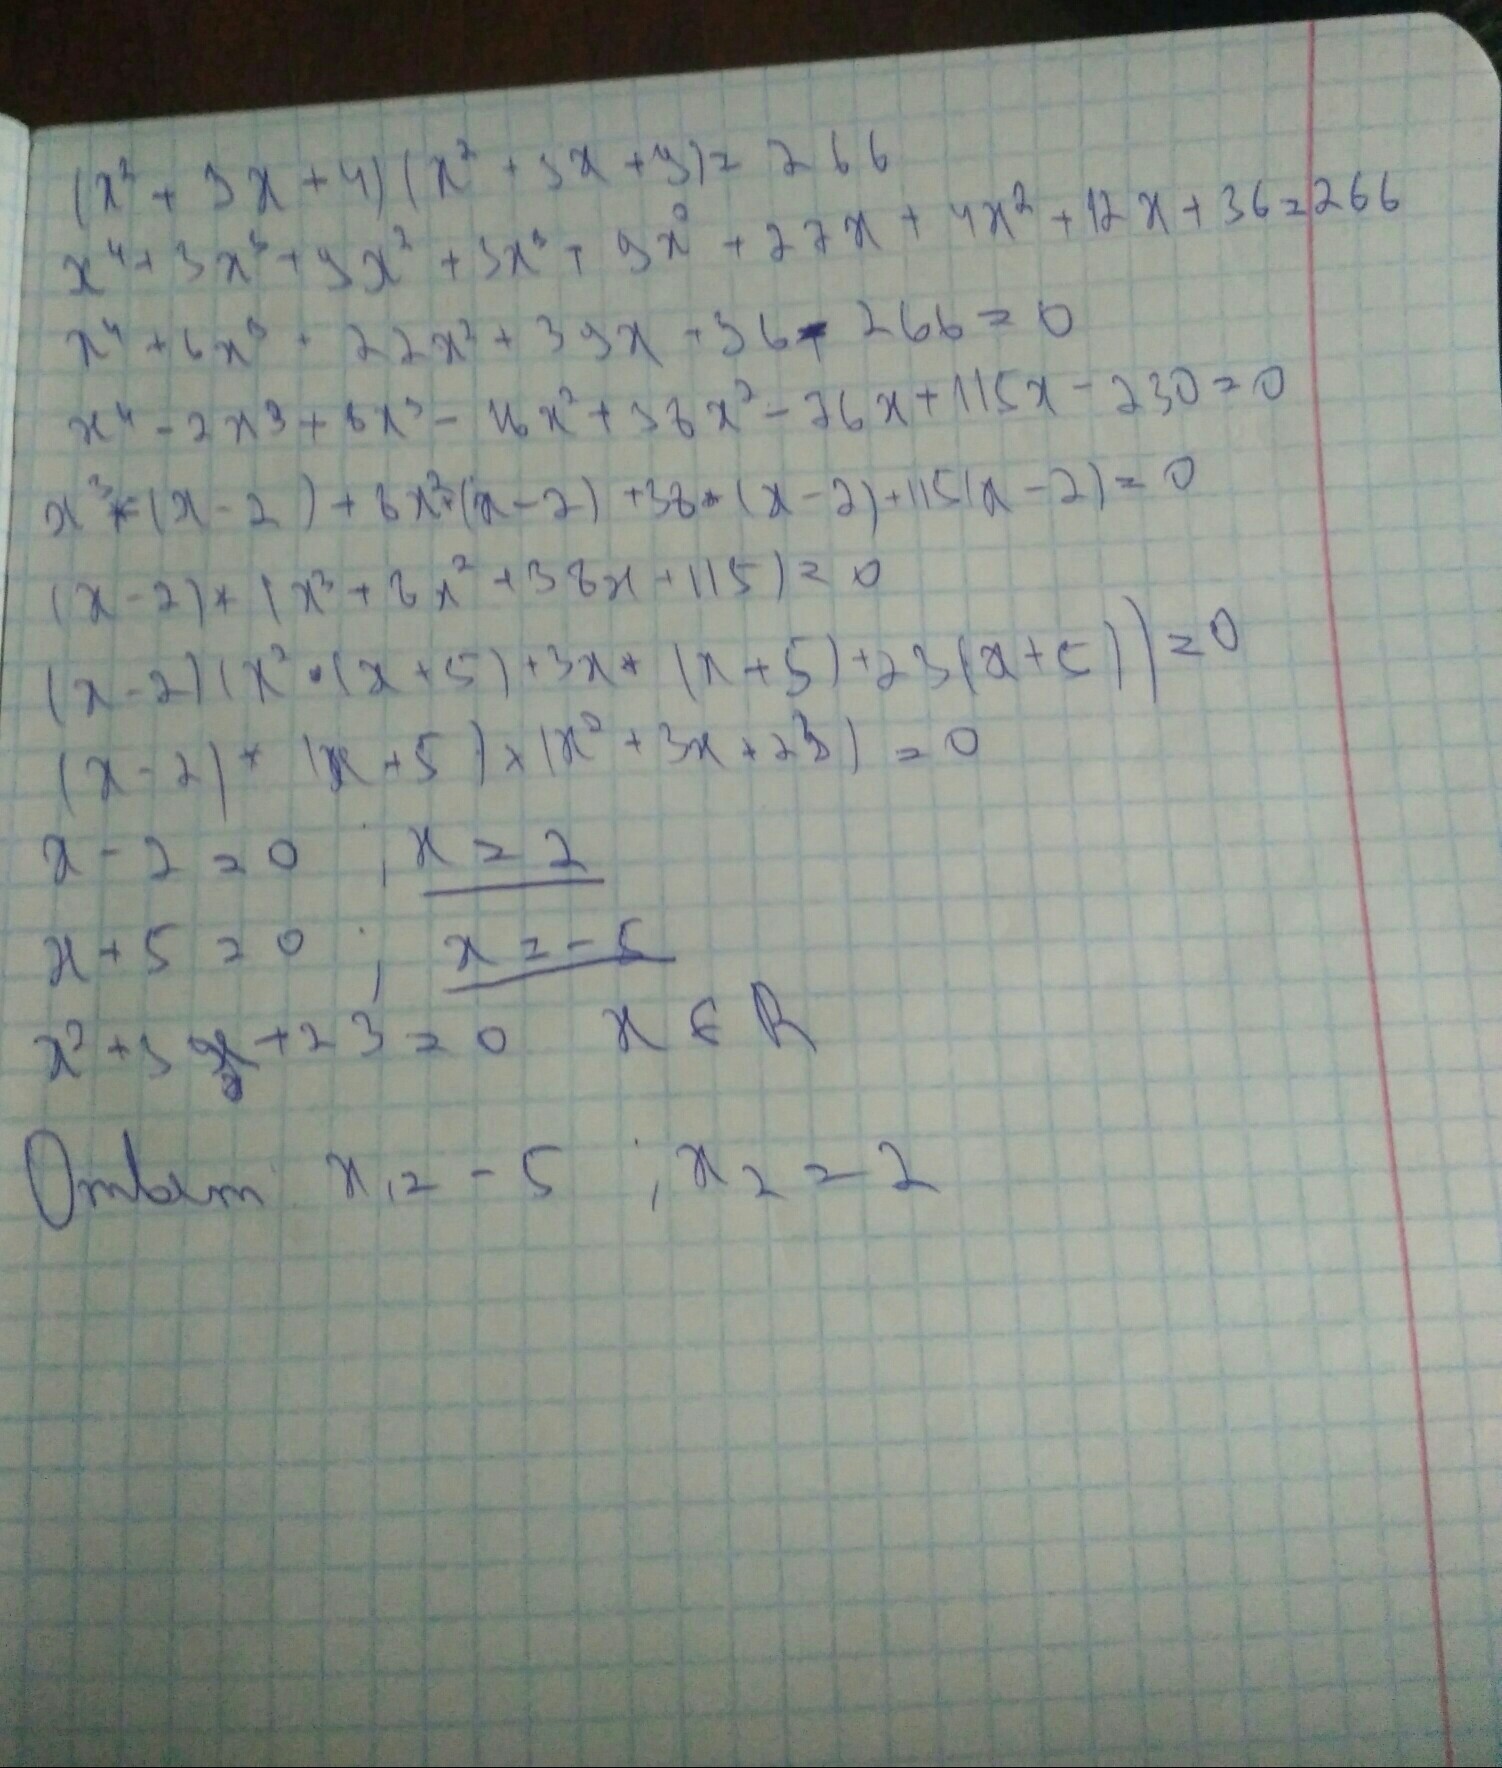 (x² + 3x + 4)(x² + 3x + 9) = 266
x⁴ + 3x³ + 9x² + 3x³ + 9x² + 27x + 4x² + 12x + 36 = 266
x⁴ + 6x³ + 22x² + 39x + 36 - 266 = 0
x⁴ - 2x³ + 8x³ - 16x² + 38x² - 76x + 115x - 230 = 0
x³*(x - 2) + 8x²*(x - 2) + 38*(x - 2) + 115(x - 2) = 0
(x - 2)*(x³ + 8x² + 38x + 115) = 0
(x - 2)(x²·(x + 5) + 3x*(x + 5) + 23(x + 5)) = 0
(x - 2)*(x + 5)*(x² + 3x + 23) = 0
x - 2 = 0 ; x = 2
x + 5 = 0 ; x = -5
x² + 3x + 23 = 0 x ∈ R
Ответ: x₁ = -5 ; x₂ = 2